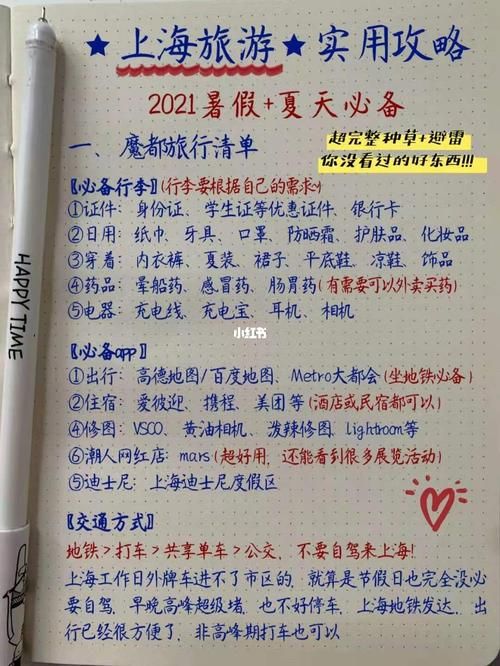 ★上海旅游★实用攻略
2021暑假+夏天必备
超完整种草+避雷
你没看过的好东西!!!
一、魔都旅行清单
【必备行李】(行李要根据自己的需求)
①证件：身份证、学生证等优惠证件、银行卡
②日用：纸巾、牙具、口罩、防晒霜、护肤品、化妆品
③穿着：内衣裤、夏装、裙子、平底鞋、凉鞋、饰品
④药品：晕船药、感冒药、肠胃药(有需要可以外卖买药)
⑤电器：充电线、充电宝、耳机、相机
小红书
【必备app】
①出行：高德地图/百度地图、Metro大都会(坐地铁必备)
②住宿：爱彼迎、携程、美团等(酒店或民宿都可以)
④修图：VSCO、黄油相机、泼辣修图、lightroom等
⑥潮人网红店：mars(超好用，还能看到很多展览活动)
⑤迪士尼：上海迪士尼度假区
【交通方式】
地铁>打车>共享单车>公交，不要自驾来上海!
上海工作日外牌车进不了市区的，就算是节假日也完全没必
要自驾，早晚高峰超级堵，也不好停车，上海地铁发达，出
行已经很方便了，非高峰期打车也可以
HAPPY TIME